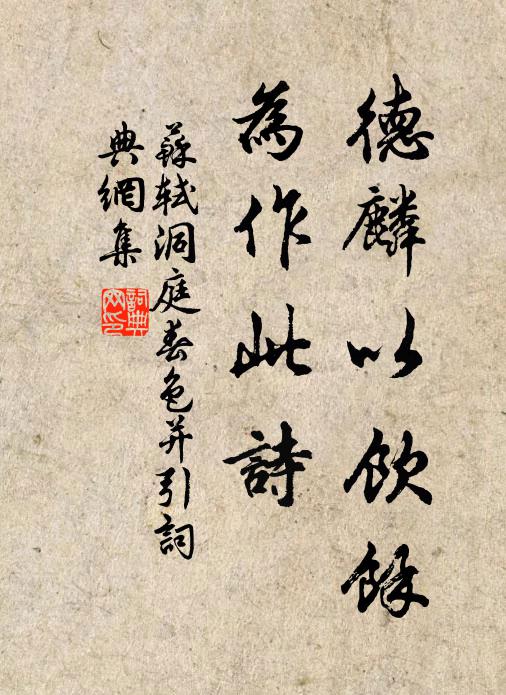 德麟以飲餘
為作此詩
蘇軾洞庭春色并引詞
典網集
詞典網印